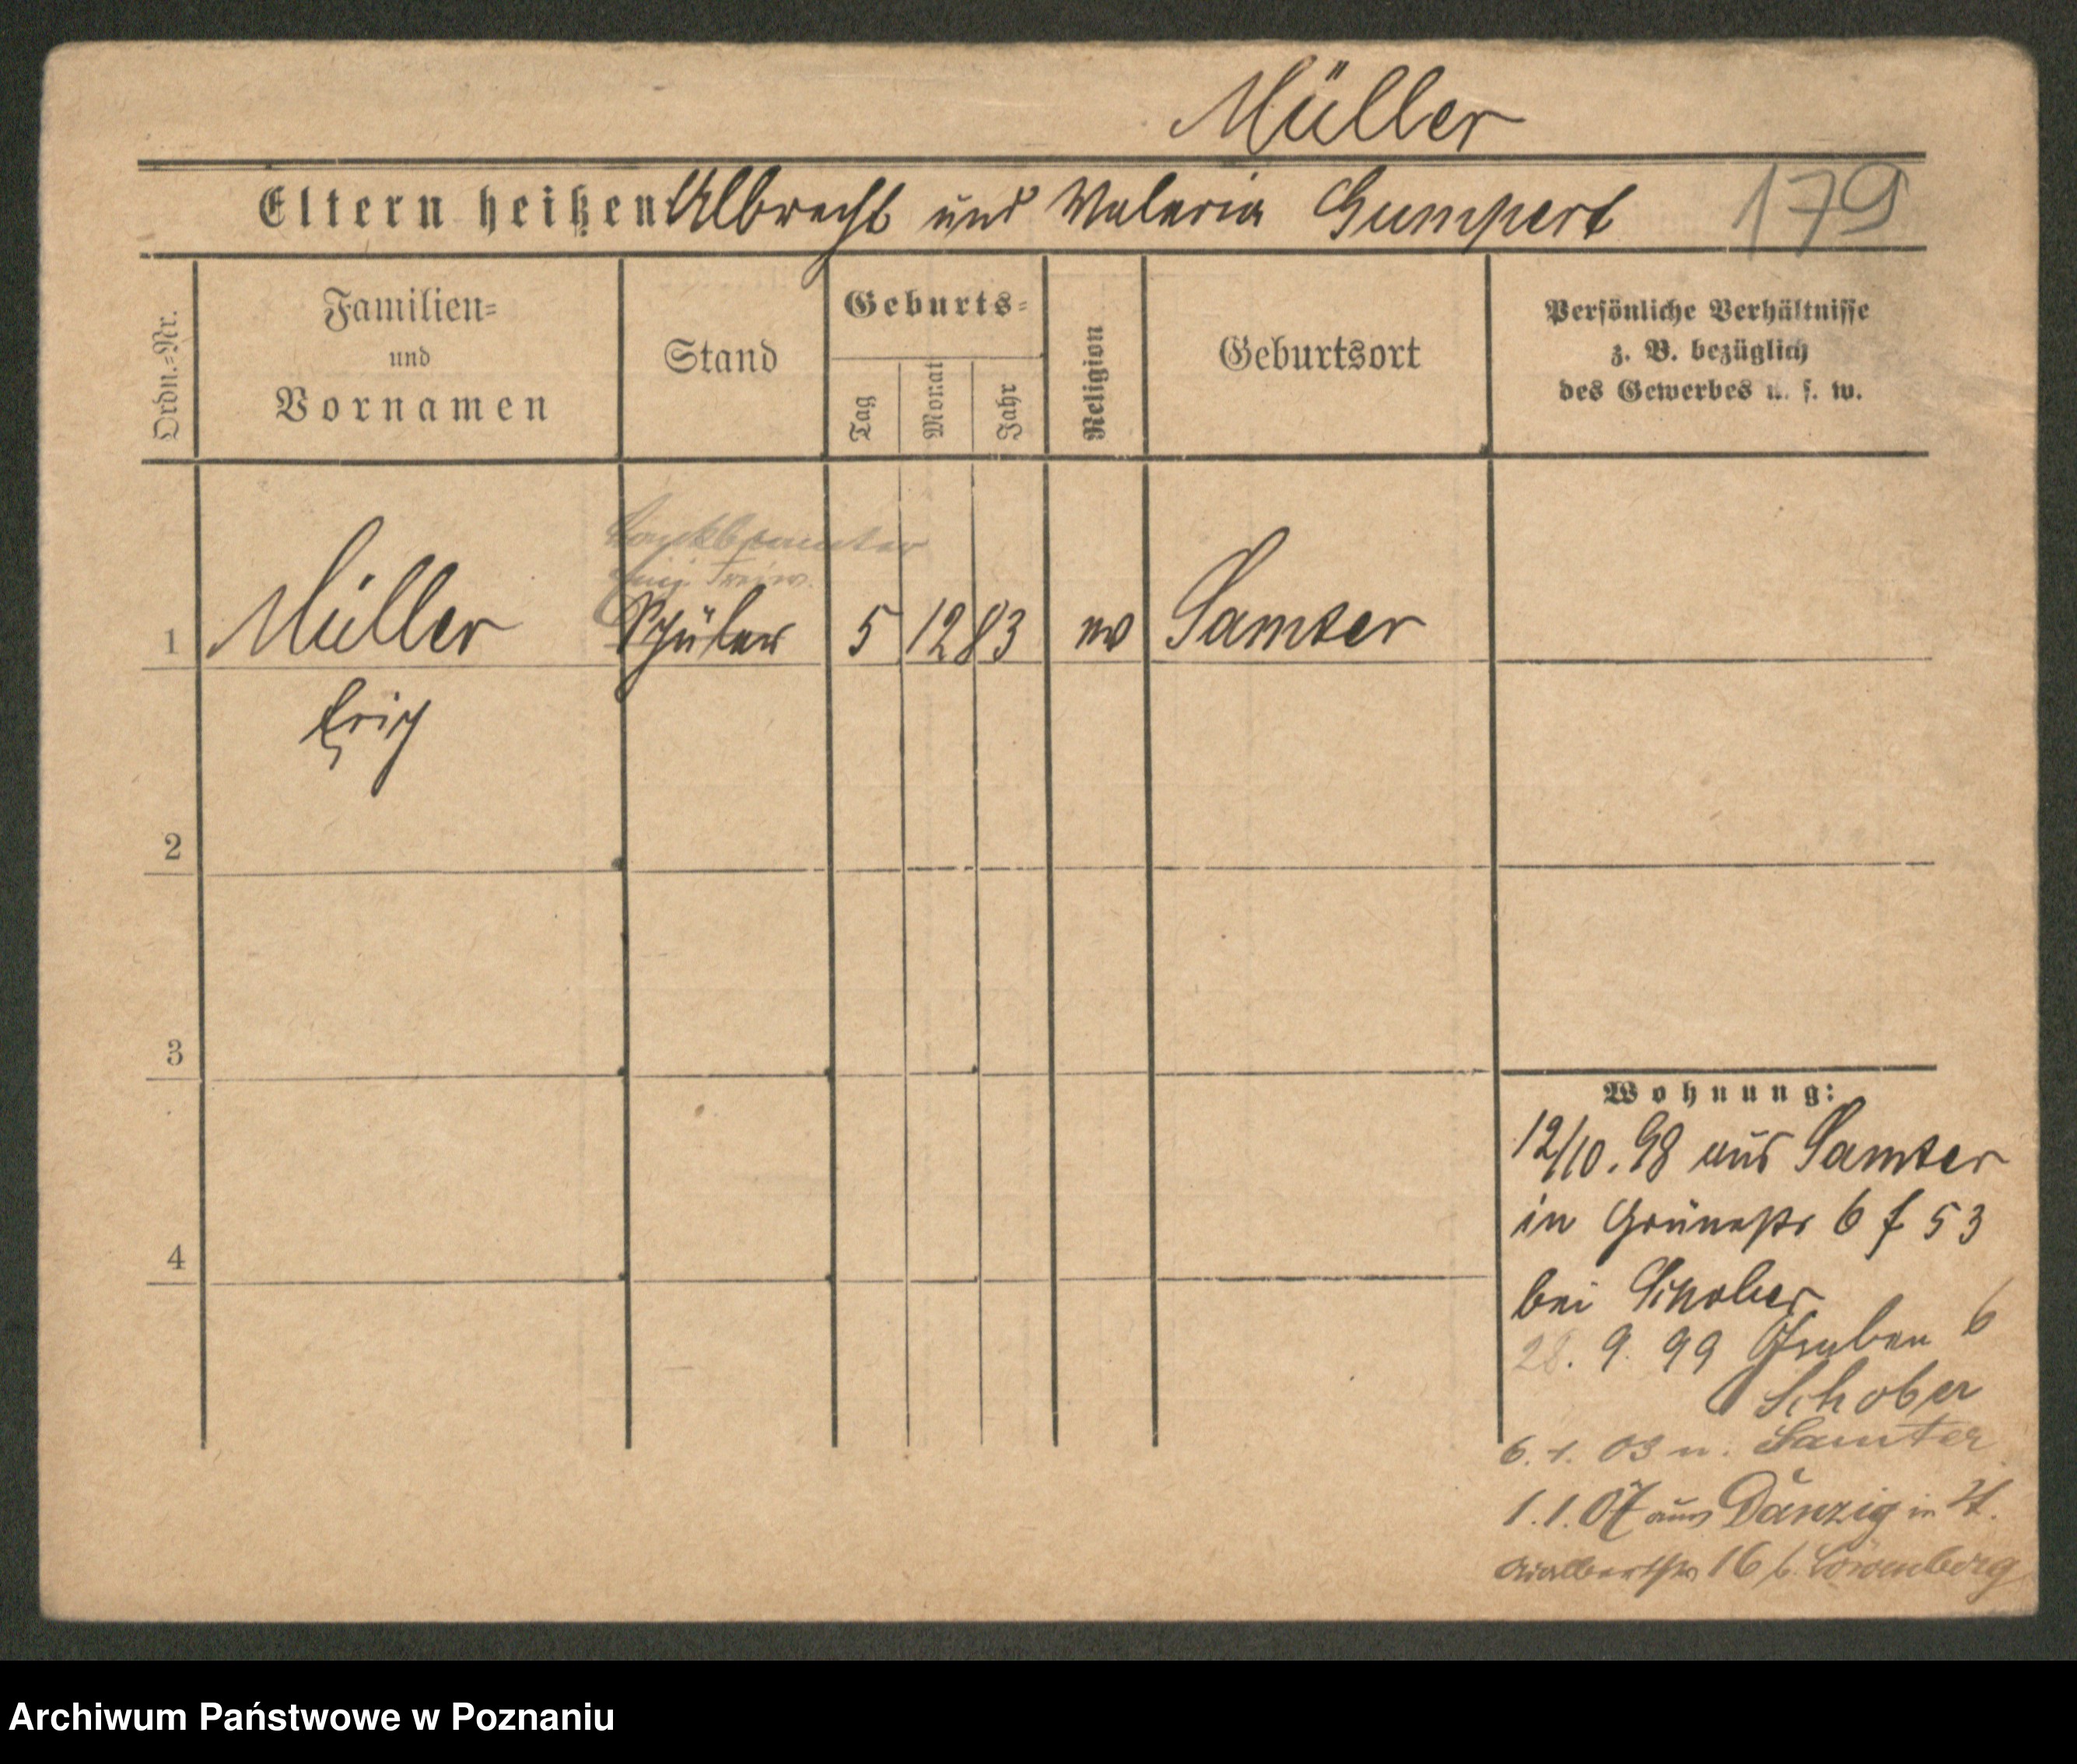 Müller
Eltern heißen Albrecht und Valeria Gumpert 179
Ordn.=Nr.
Familien=
und
Vornamen
Stand
Geburts=
Tag
Monat
Jahr
Religion
Geburtsort
Persönliche Verhältnisse
z. B. bezüglich
des Gewerbes u. s. w.
Bankbeamter
1 Müller Schüler 5 12 83 ev Samter
Erich
2
3
4
Wohnung:
12/10. 98 aus Samter
in Grünestr 6 f 53
bei Schober
28. 9. 99 Graben 6
Schober
6. 1. 03 n. Samter
1.1.07 aus Danzig in St.
Adalbertstr 16 b. Löwenberg
Archiwum Państwowe w Poznaniu